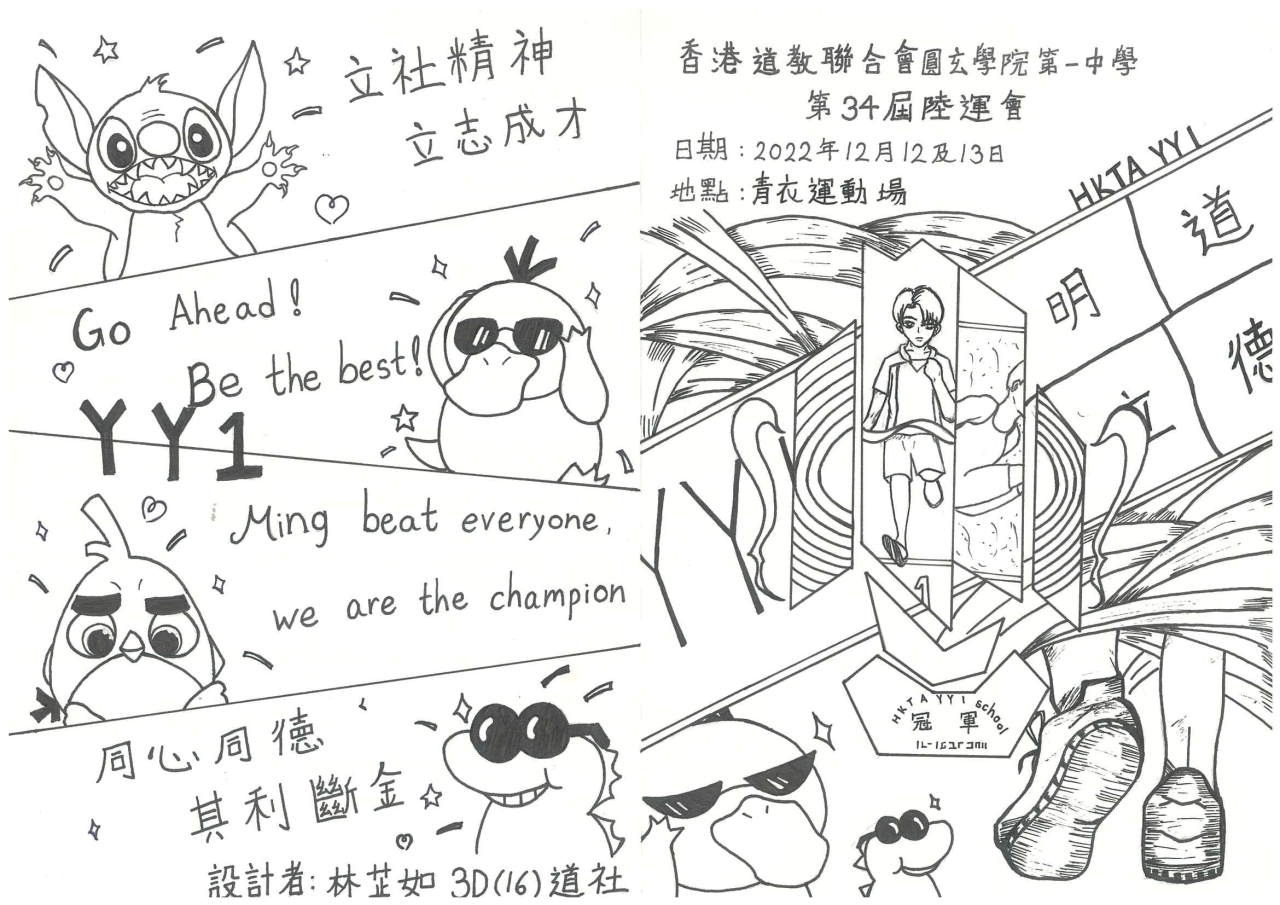 立社精神
立志成才
Go Ahead!
Be the best!
YY1
Ming beat everyone,
we are the champion
同心同德
其利斷金
設計者：林芷如 3D(16) 道社
香港道教聯合會圓玄學院第一中學
第34屆陸運會
日期：2022年12月12及13日
地點：青衣運動場
HKTA YY1
道
明
德
立
YY
1
HKTA YY1 school
冠軍